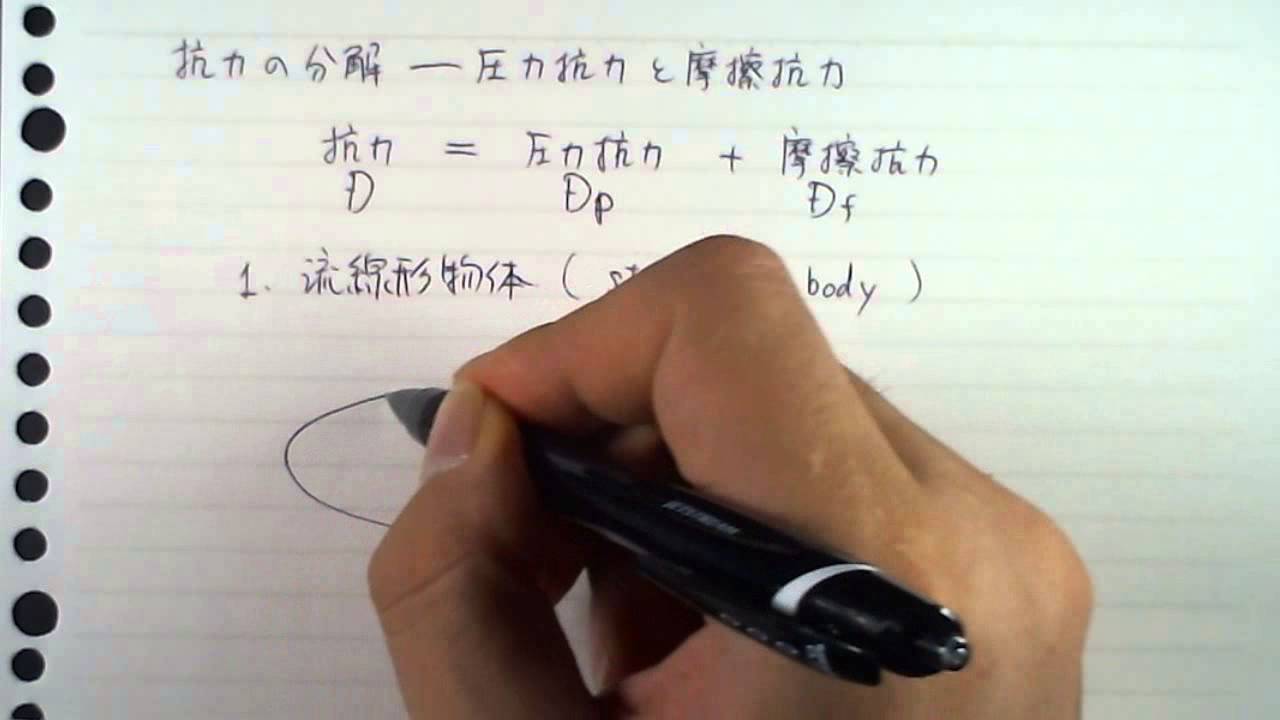 抗力の分解 ― 圧力抗力と摩擦抗力
抗力 = 圧力抗力 + 摩擦抗力
D Dp Df
1. 流線形物体 ( body )
JETSTREAM